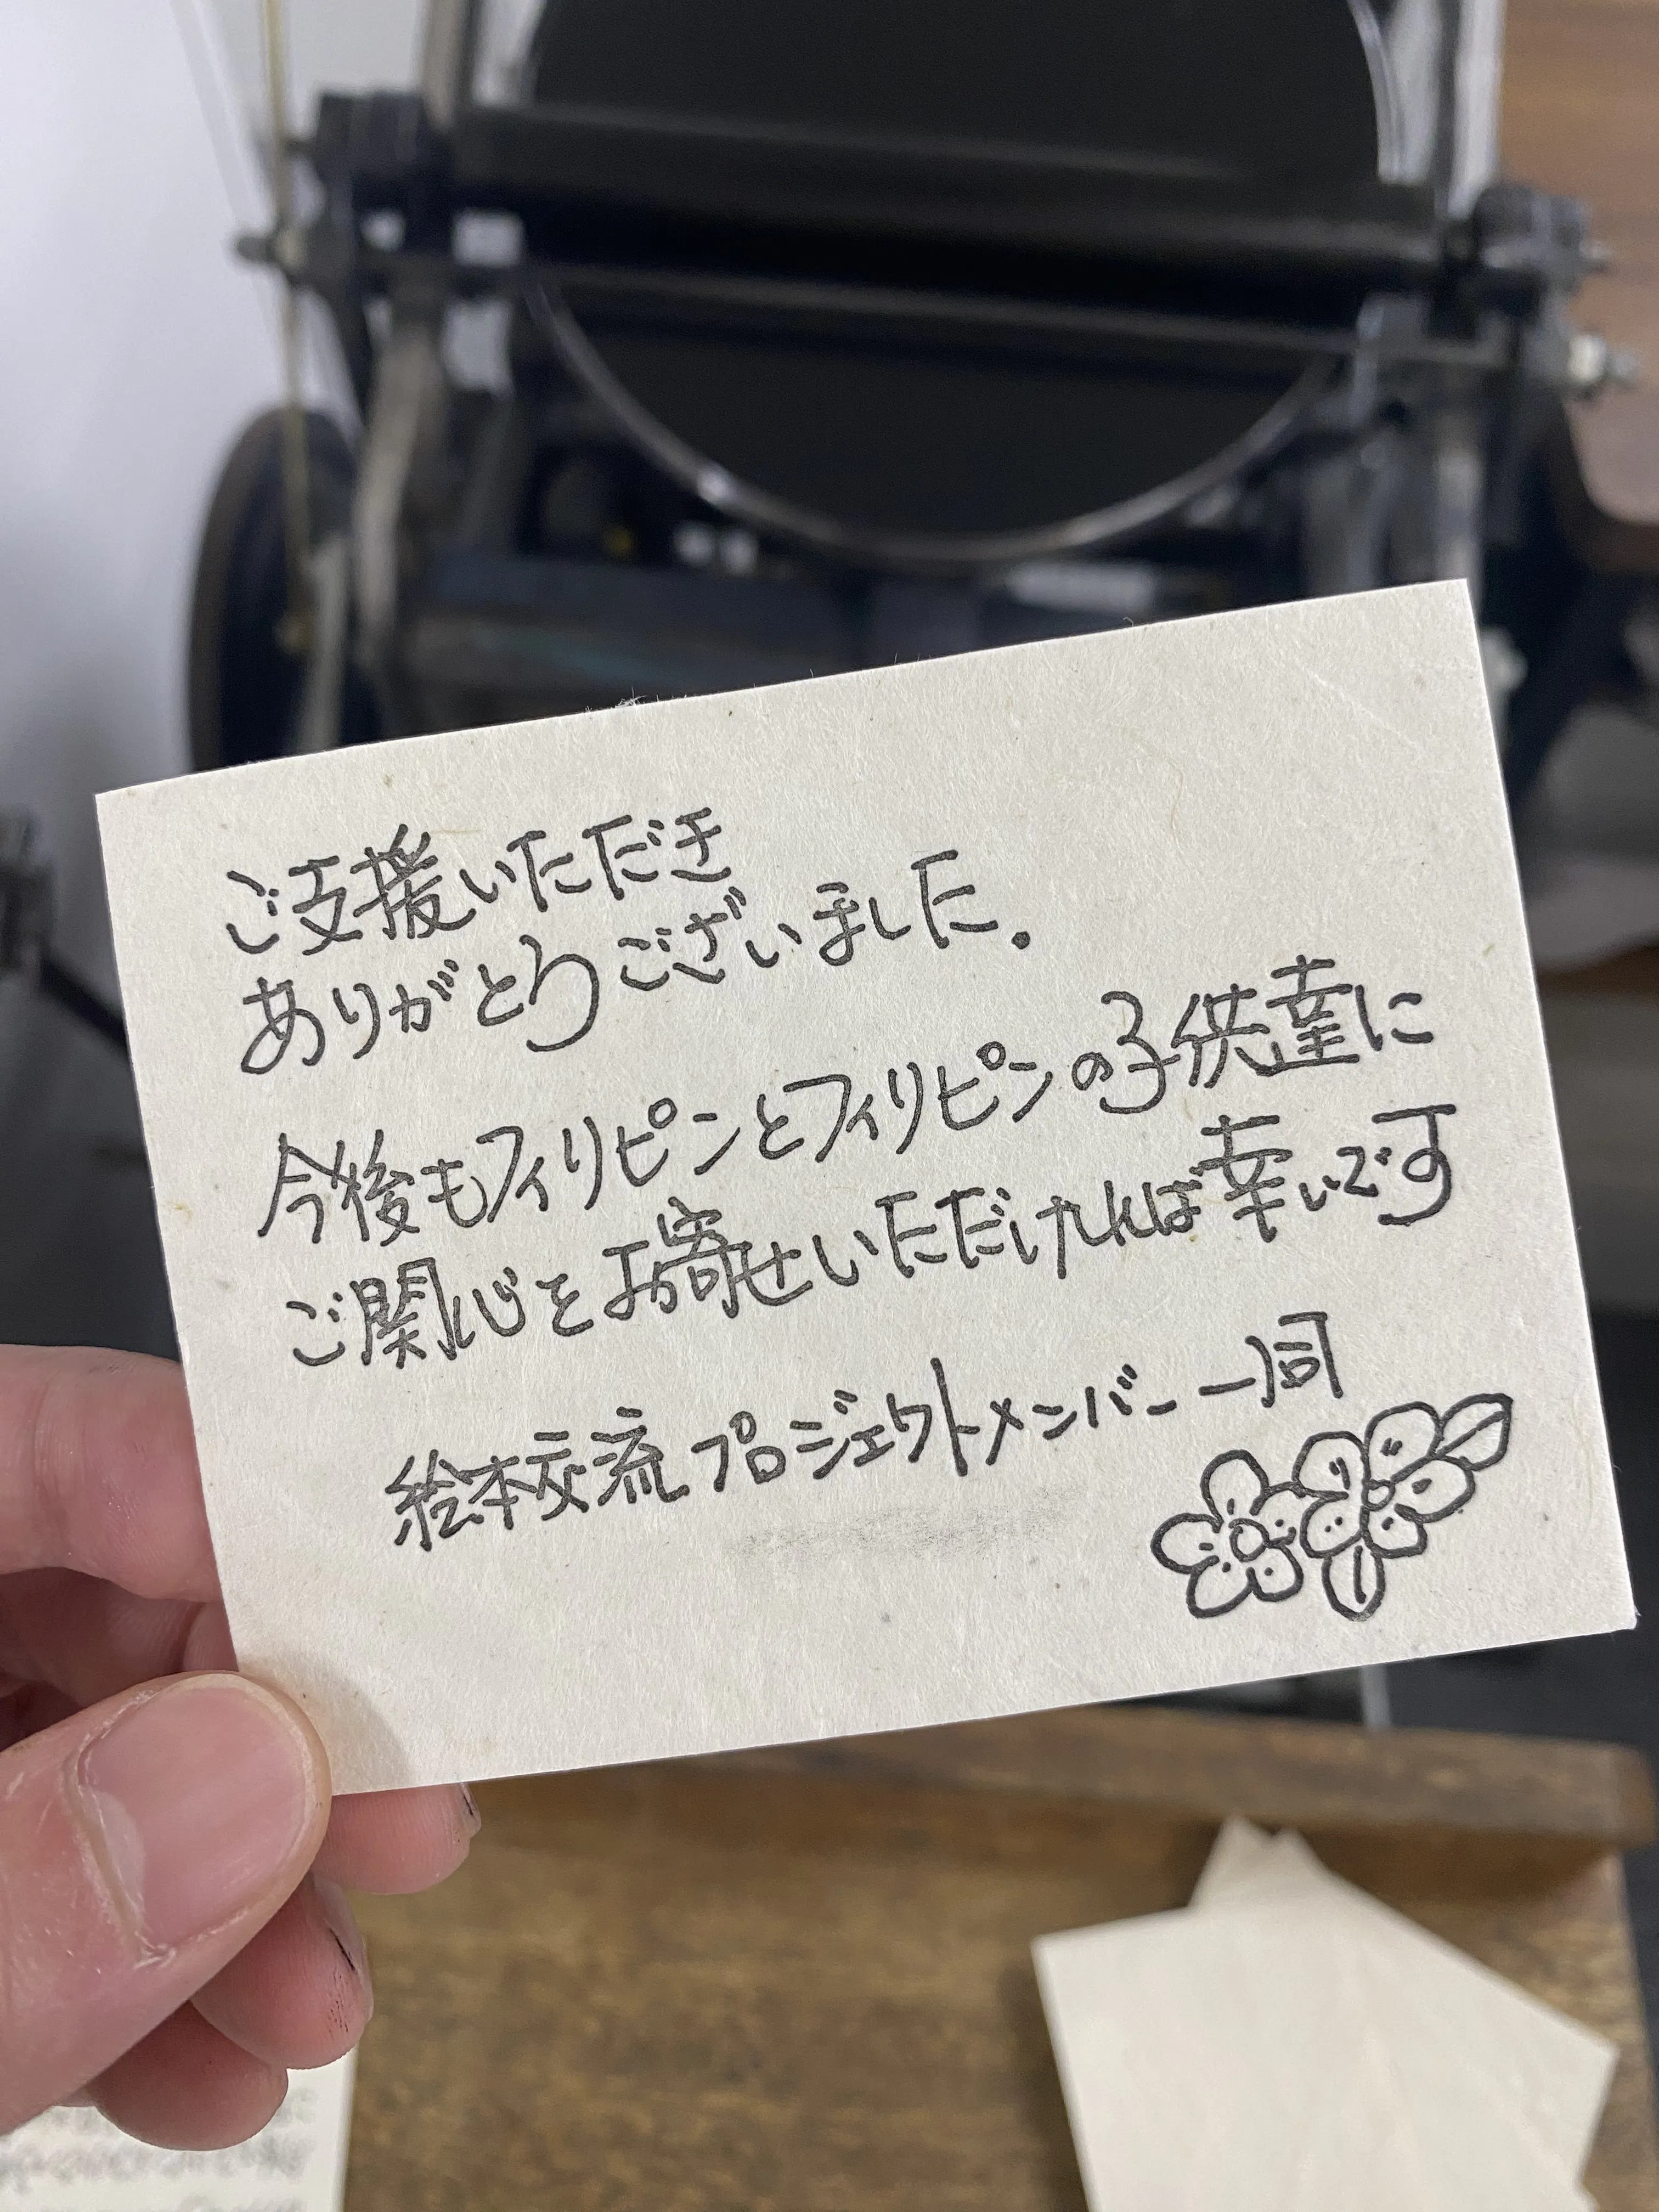 ご支援いただき
ありがとうございました.
今後もフィリピンとフィリピンの子供達に
ご関心をお寄せいただければ幸いです
絵本交流プロジェクトメンバー一同